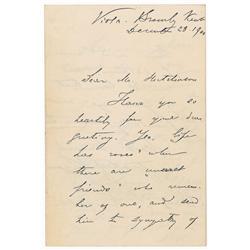 Bromley Kent
December 28 190
Dear Mr. Hutchinson
Thank you so
heartily for your dear
greeting. Yes, life
has roses when
there are "unseen
friends" who remem-
ber one, and send
him the sympathy of